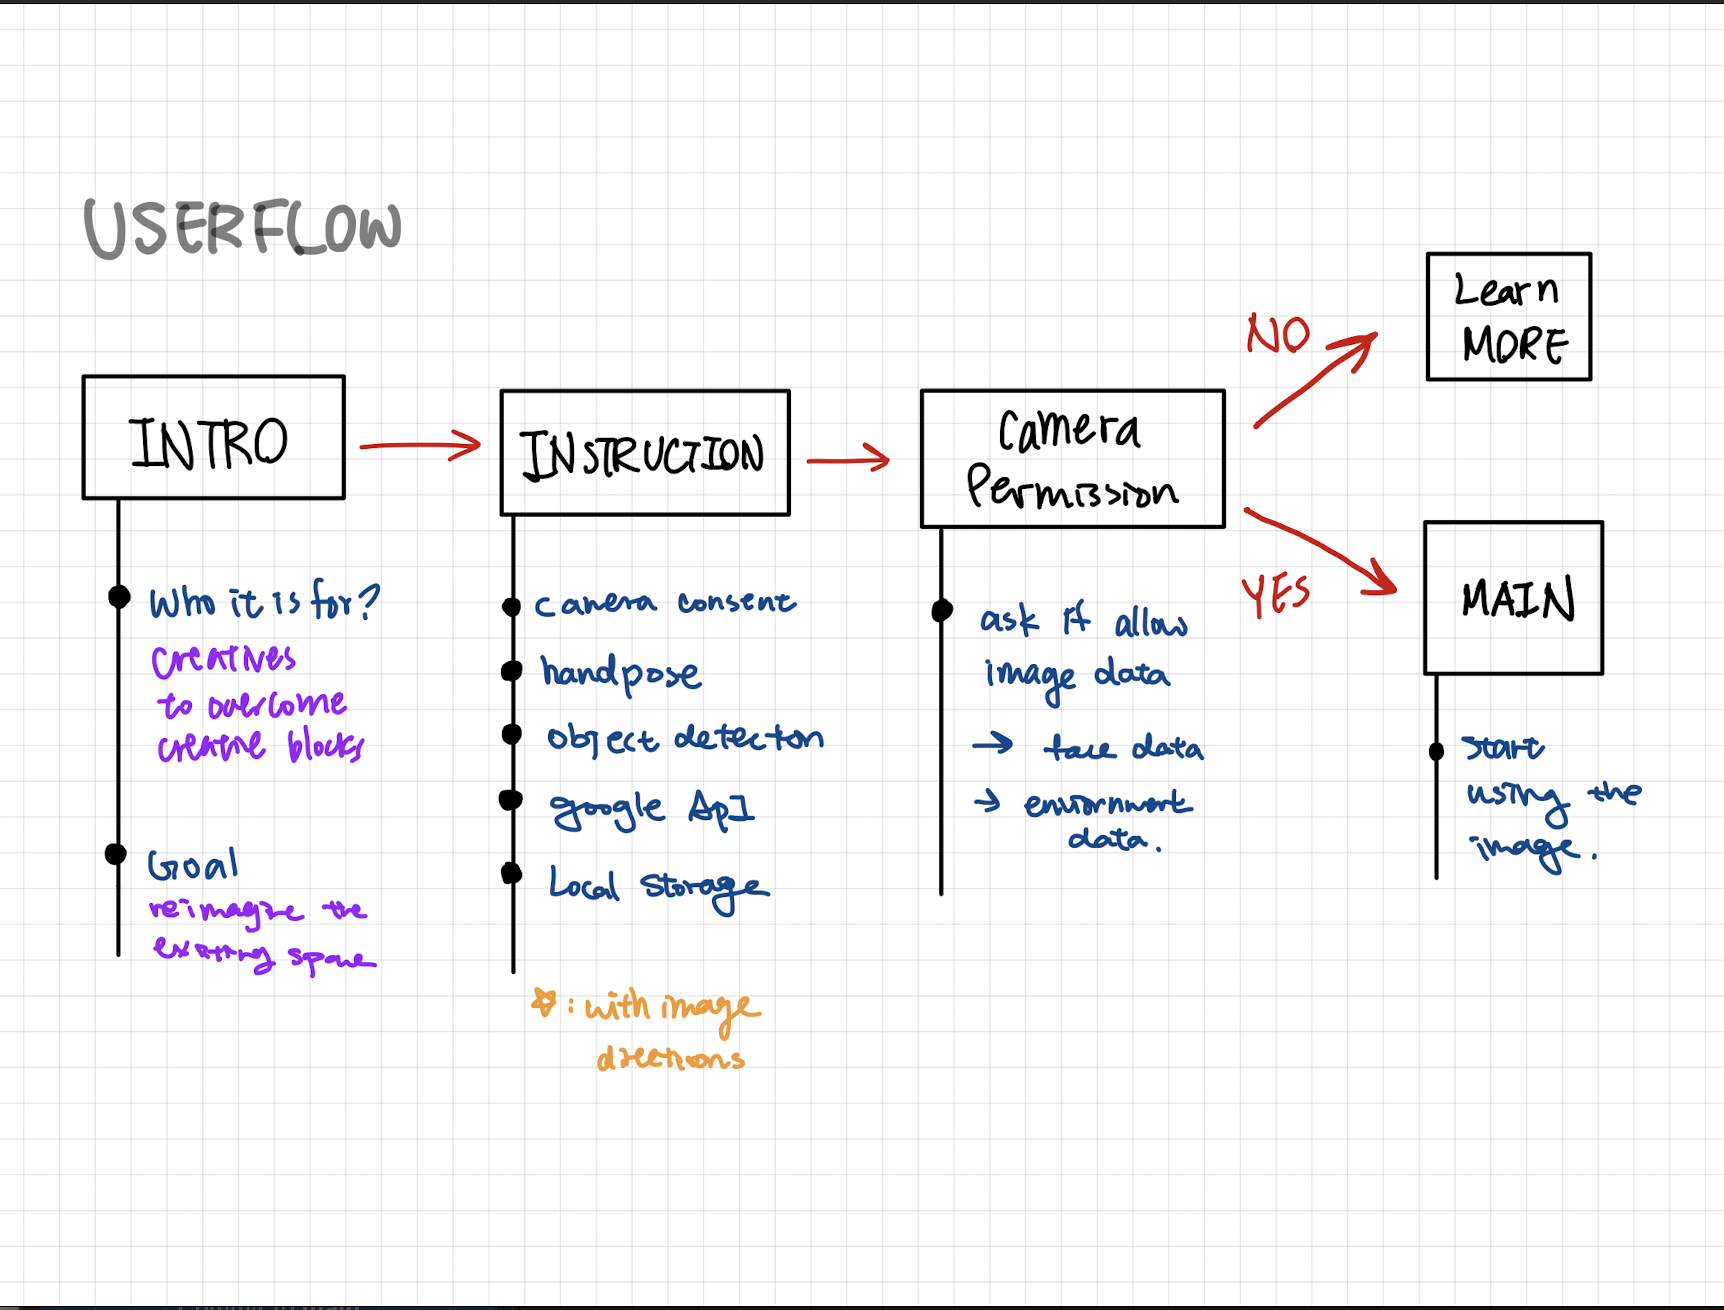 USERFLOW
INTRO
Who it is for?
creatives
to overcome
creative blocks
Goal
reimagine the
existing space
INSTRUCTION
camera consent
handpose
object detection
google ApI
Local Storage
: with image
directions
Camera
Permission
ask if allow
image data
→ face data
→ enviornment
data.
NO
Learn
MORE
YES
MAIN
Start
using the
image.